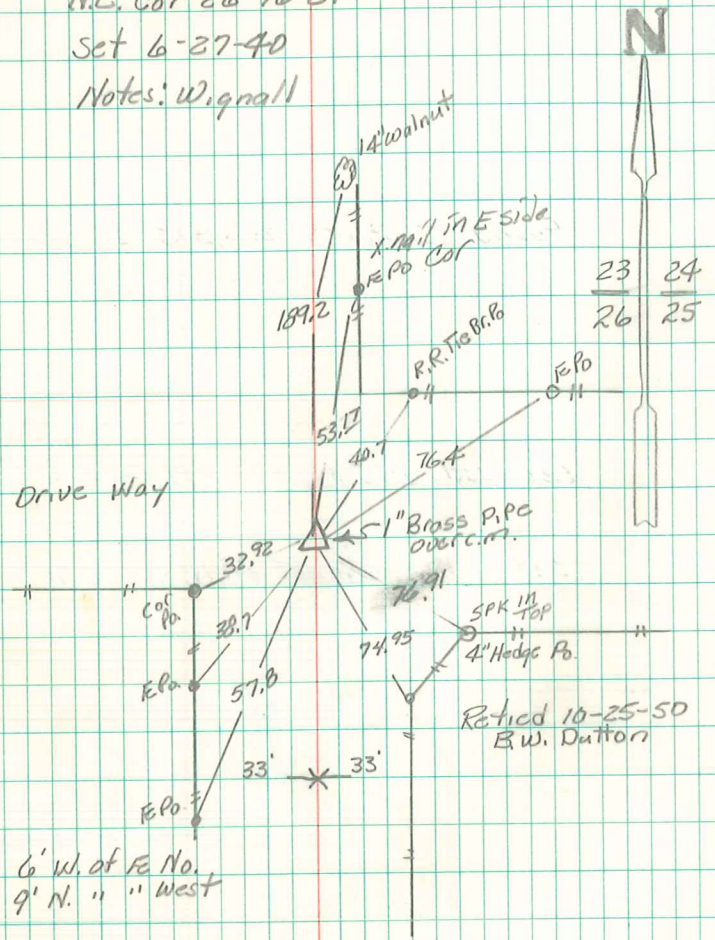 N.E. Cor 26
Set 6-27-40
Notes: Wignall
N
14" Walnut
X nail in E side
FE Po Cor
23 24
26 25
189.2
R.R. Tie Br. Po
FE Po
53.17
40.7
76.4
Drive Way
1" Brass Pipe
over c.m.
32.92
76.91
Cor
Po.
SPK in
TOP
38.7
74.95
4" Hedge Po.
FE Po.
57.8
Retied 10-25-50
B.W. Dutton
33' 33'
FE Po
6' W. of FE No.
9' N. " " West